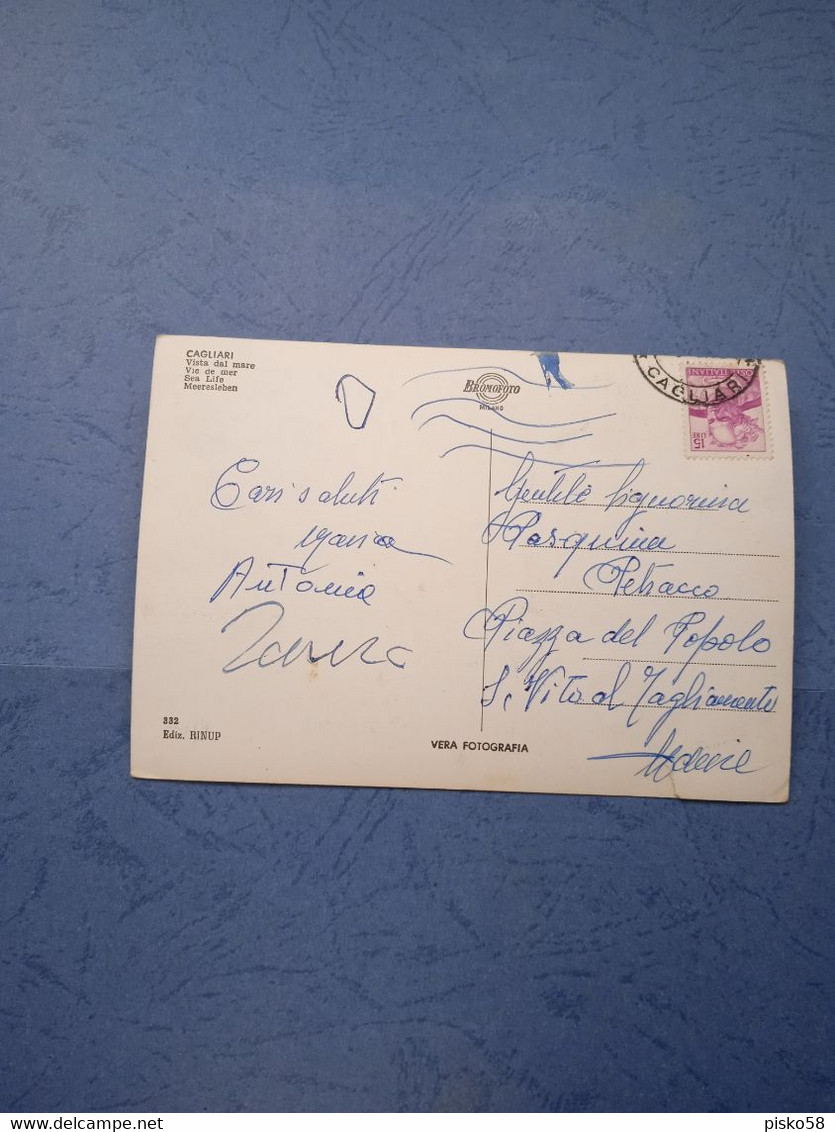 CAGLIARI
Vista dal mare
Vie de mer
Sea Life
Meeresleben
BROMOFOTO
MILANO
CAGLIARI
POSTE ITALIANE
15
LIRE
Cari saluti
Maria
Antonia
332
Ediz. RINUP
VERA FOTOGRAFIA
Gentile Signorina
Pasquina
Petracco
Piazza del Popolo
S. Vito al Tagliamento
Udine
pisko58